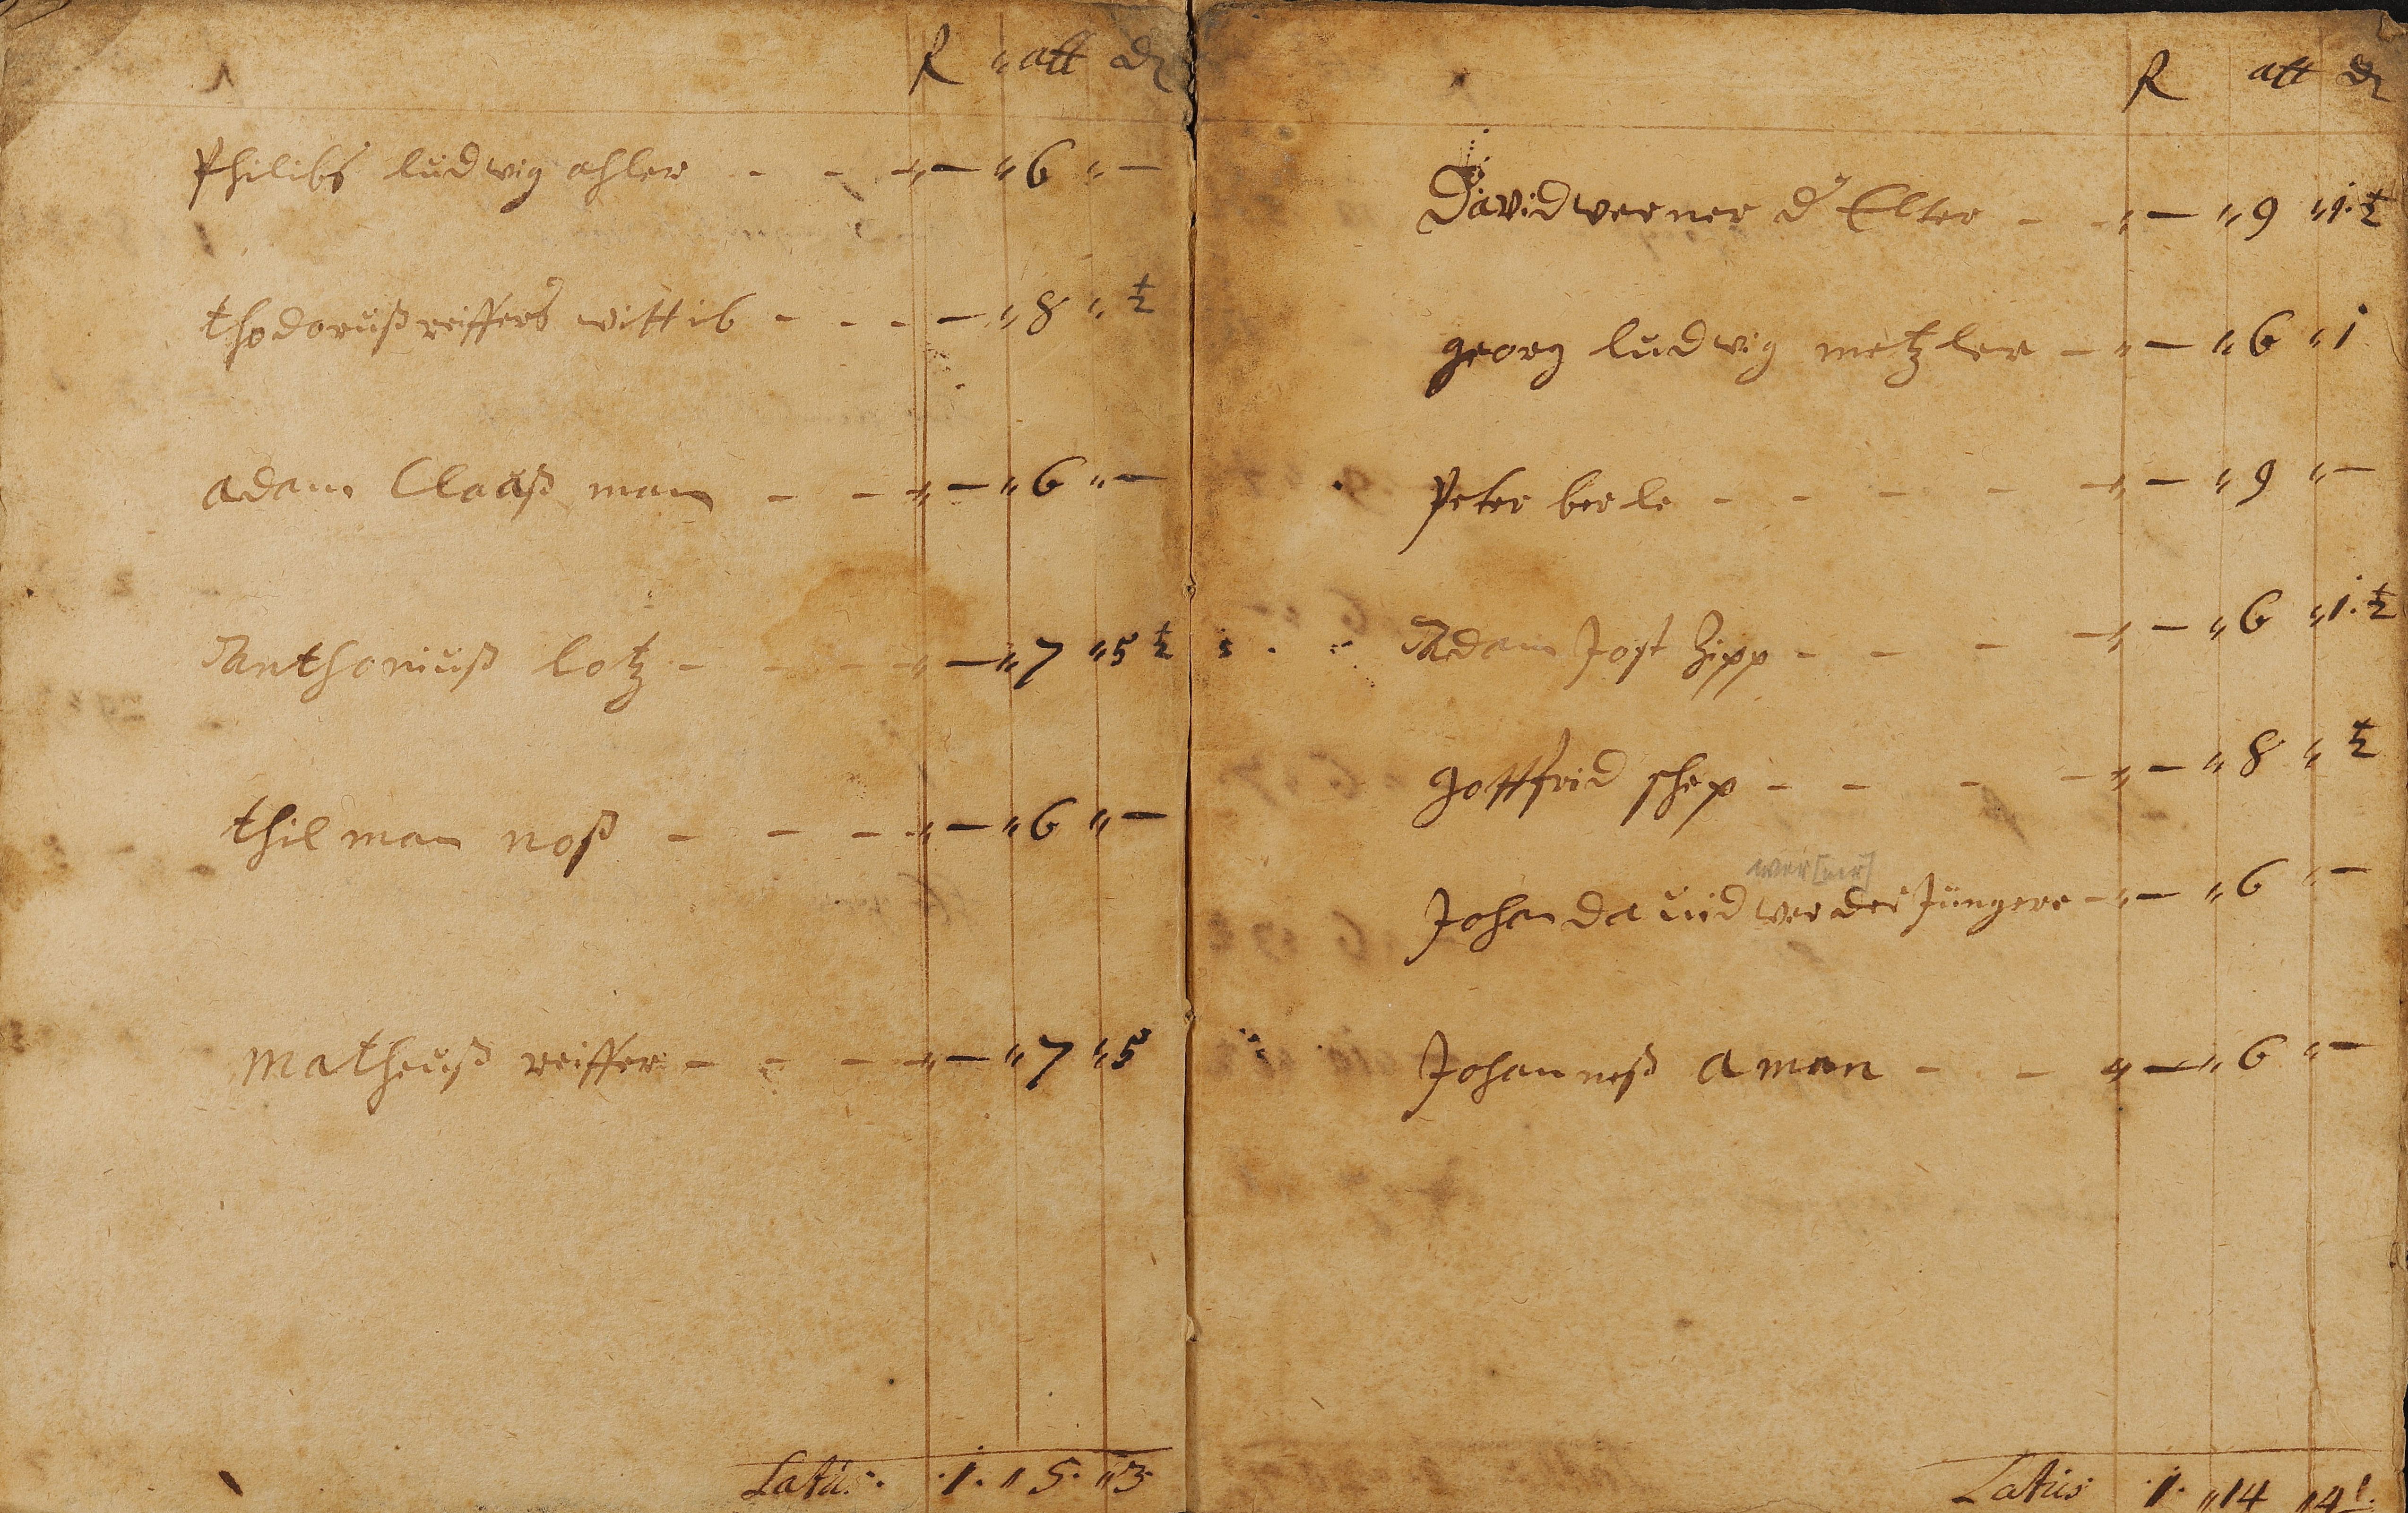 R " att d
Philibs ludwig ahler - - " — " 6 " —
thodoruß reiffers wittib - - - — " 8 " ½
adam Claaß man - - " — " 6 " —
Anthoniuß lotz - - - " — " 7 " 5 ½
thil man noß - - - " — " 6 " —
Matheuß reiffer - - - " — " 7 " 5
Latus. 1. " 5. " 3
R att d
David werner d Elter - " — " 9 " 1. ½
georg ludwig metzler - " — " 6 " 1
Peter berle - - - - " — " 9 " —
Adam Jost Zipp - - - " — " 6 " 1. ½
gottfrid schep - - - " — " 8 " ½
wer[ner]
Johan dauid wer der Jüngere - " — " 6 " —
Johanneß aman - - " — " 6 " —
Latus 1. " 14 " 4 ½